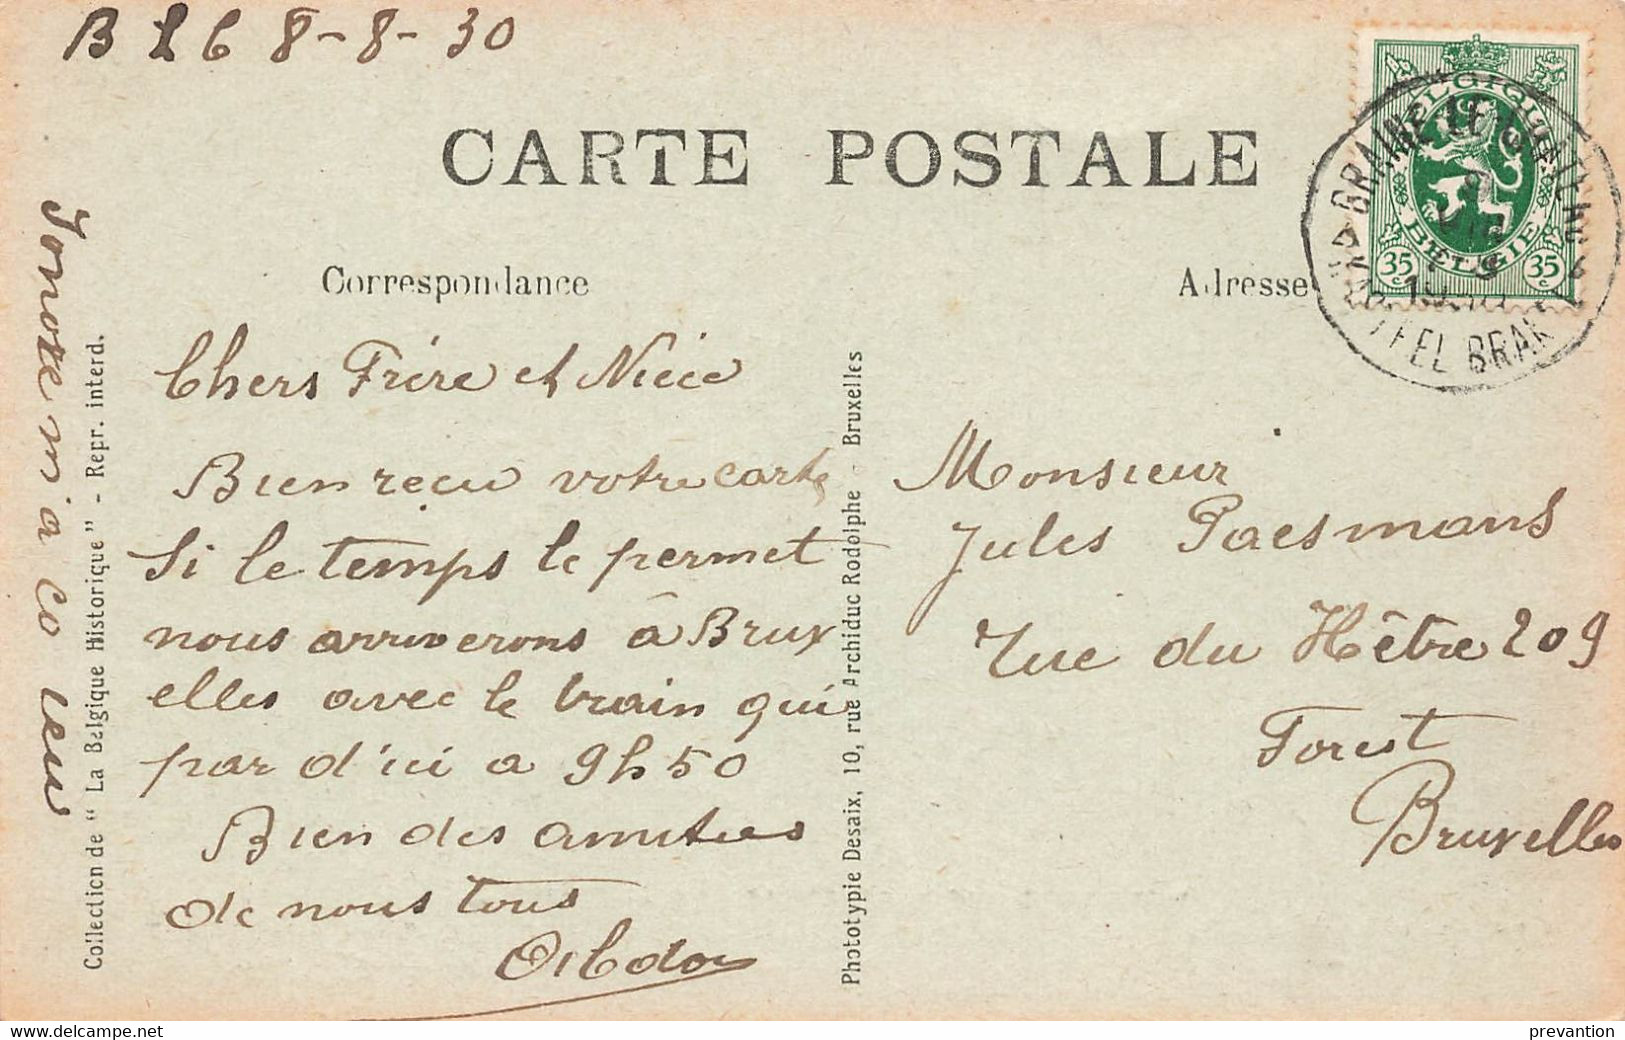 B L C 8-8-30
CARTE POSTALE
Correspondance
Adresse
BELGIQUE
BELGIE
35 c 35 c
Chers Frère et Nièce
Bien reçu votre carte
Si le temps le permet
nous arriverons à Brux
elles avec le train qui
par d'ici a 9h50
Bien des amitiés
de nous tous
Monsieur
Jules Paesmans
Rue du Hêtre 209
Forest
Bruxelles
Collection de " La Belgique Historique " - Repr. interd.
Phototypie Desaix, 10, rue Archiduc Rodolphe - Bruxelles
delcampe.net
prevantion